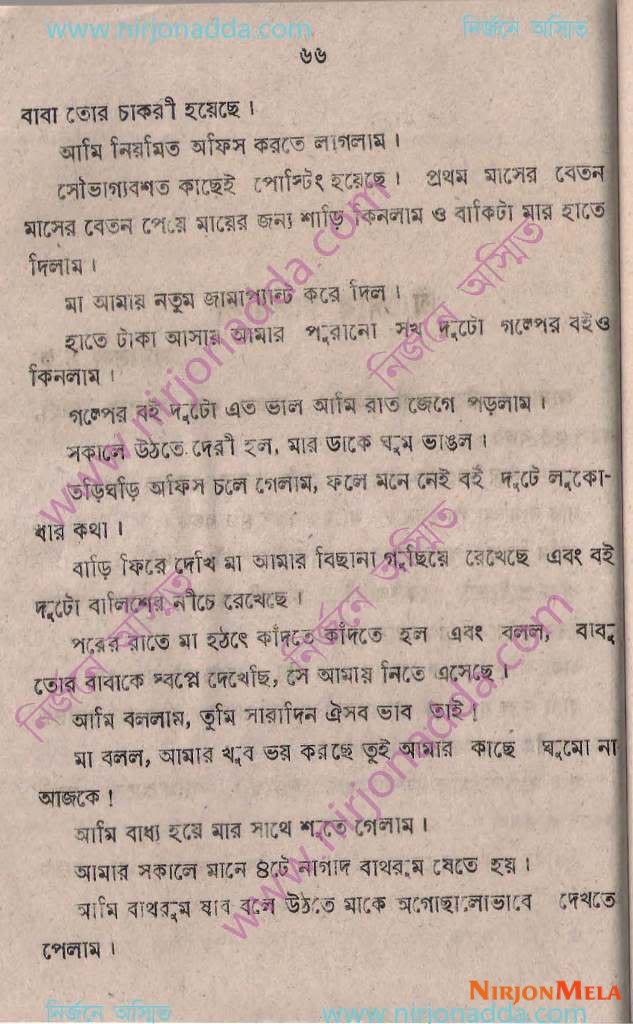 www.nirjonadda.com নির্জনে অস্মিত
৬৬
বাবা তোর চাকরী হয়েছে।
আমি নিয়মিত অফিস করতে লাগলাম।
সৌভাগ্যবশত কাছেই পোস্টিং হয়েছে। প্রথম মাসের বেতন
মাসের বেতন পেয়ে মায়ের জন্য শাড়ি কিনলাম ও বাকিটা মার হাতে
দিলাম।
মা আমায় নতুম জামাপ্যান্ট করে দিল।
হাতে টাকা আসায় আমার পুরানো সখ দুটো গল্পের বইও
কিনলাম।
গল্পের বই দুটো এত ভাল আমি রাত জেগে পড়লাম।
সকালে উঠতে দেরী হল, মার ডাকে ঘুম ভাঙল।
তড়িঘড়ি অফিস চলে গেলাম, ফলে মনে নেই বই দুটে লুকো-
বার কথা।
বাড়ি ফিরে দেখি মা আমার বিছানা গুছিয়ে রেখেছে এবং বই
দুটো বালিশের নীচে রেখেছে।
পরের রাতে মা হঠৎে কাঁদতে কাঁদতে হল এবং বলল, বাবু
তোর বাবাকে স্বপ্নে দেখেছি, সে আমায় নিতে এসেছে।
আমি বললাম, তুমি সারাদিন ঐসব ভাব তাই!
মা বলল, আমার খুব ভয় করছে তুই আমার কাছে ঘুমো না
আজকে!
আমি বাধ্য হয়ে মার সাথে শুতে গেলাম।
আমার সকালে মানে ৪টে নাগাদ বাথরুম যেতে হয়।
আমি বাথরুম যাব বলে উঠতে মাকে অগোছালোভাবে দেখতে
পেলাম।
www.nirjonadda.com নির্জনে অস্মিত
www.nirjonadda.com নির্জনে অস্মিত
নির্জনে অস্মিত
NIRJONMELA
নির্জনে অস্মিত www.nirjonadda.com